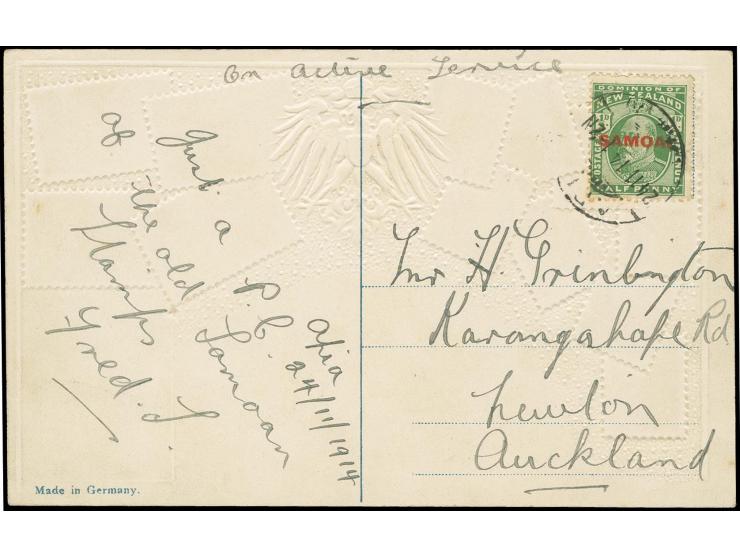 On Active Service
Just a P.C.
of the old Samoan
Stamps
Fred. S.
Apia
24/11/1914
DOMINION OF
NEW ZEALAND
POSTAGE
REVENUE
SAMOA
HALF PENNY
Mr H. Grinbington
Karangahape Rd
Newton
Auckland
Made in Germany.